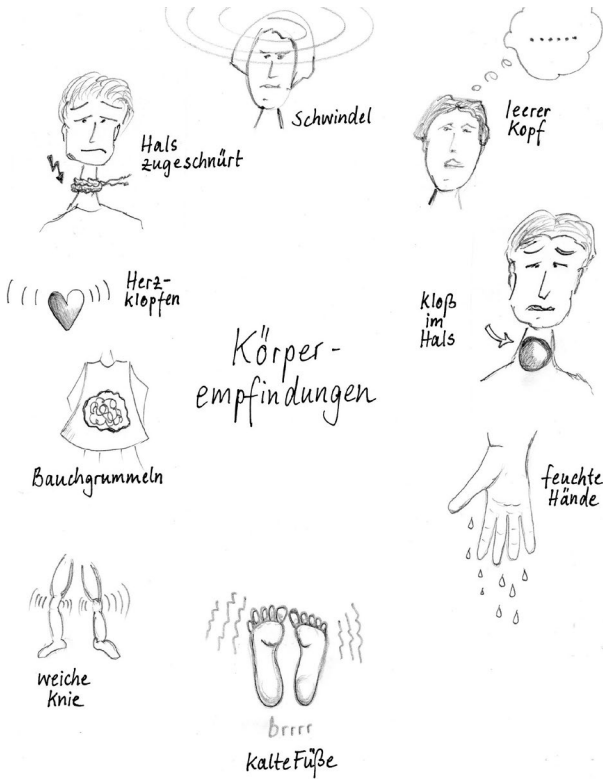 ......
Schwindel
leerer
Kopf
Hals
zugeschnürt
Herz-
klopfen
Kloß
im
Hals
Körper-
empfindungen
Bauchgrummeln
feuchte
Hände
weiche
Knie
brrrr
kalte Füße